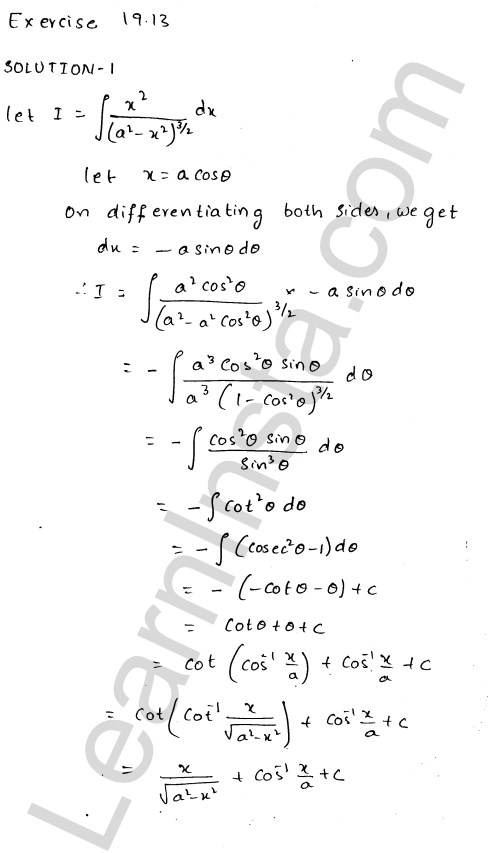 Exercise 19.13
SOLUTION-1
let I = ∫ x²/(a²-x²)^3/2 dx
let x = a cosθ
On differentiating both sides, we get
dx = - a sinθ dθ
∴ I = ∫ a² cos²θ/(a² - a² cos²θ)^3/2 × - a sinθ dθ
= - ∫ a³ cos²θ sinθ/a³ (1 - cos²θ)^3/2 dθ
= - ∫ cos²θ sinθ/sin³θ dθ
= - ∫ cot²θ dθ
= - ∫ (cosec²θ - 1) dθ
= - (-cotθ - θ) + c
= cotθ + θ + c
= cot (cos⁻¹ x/a) + cos⁻¹ x/a + c
= cot (cot⁻¹ x/√(a²-x²)) + cos⁻¹ x/a + c
= x/√(a²-x²) + cos⁻¹ x/a + c
LearnInsta.com